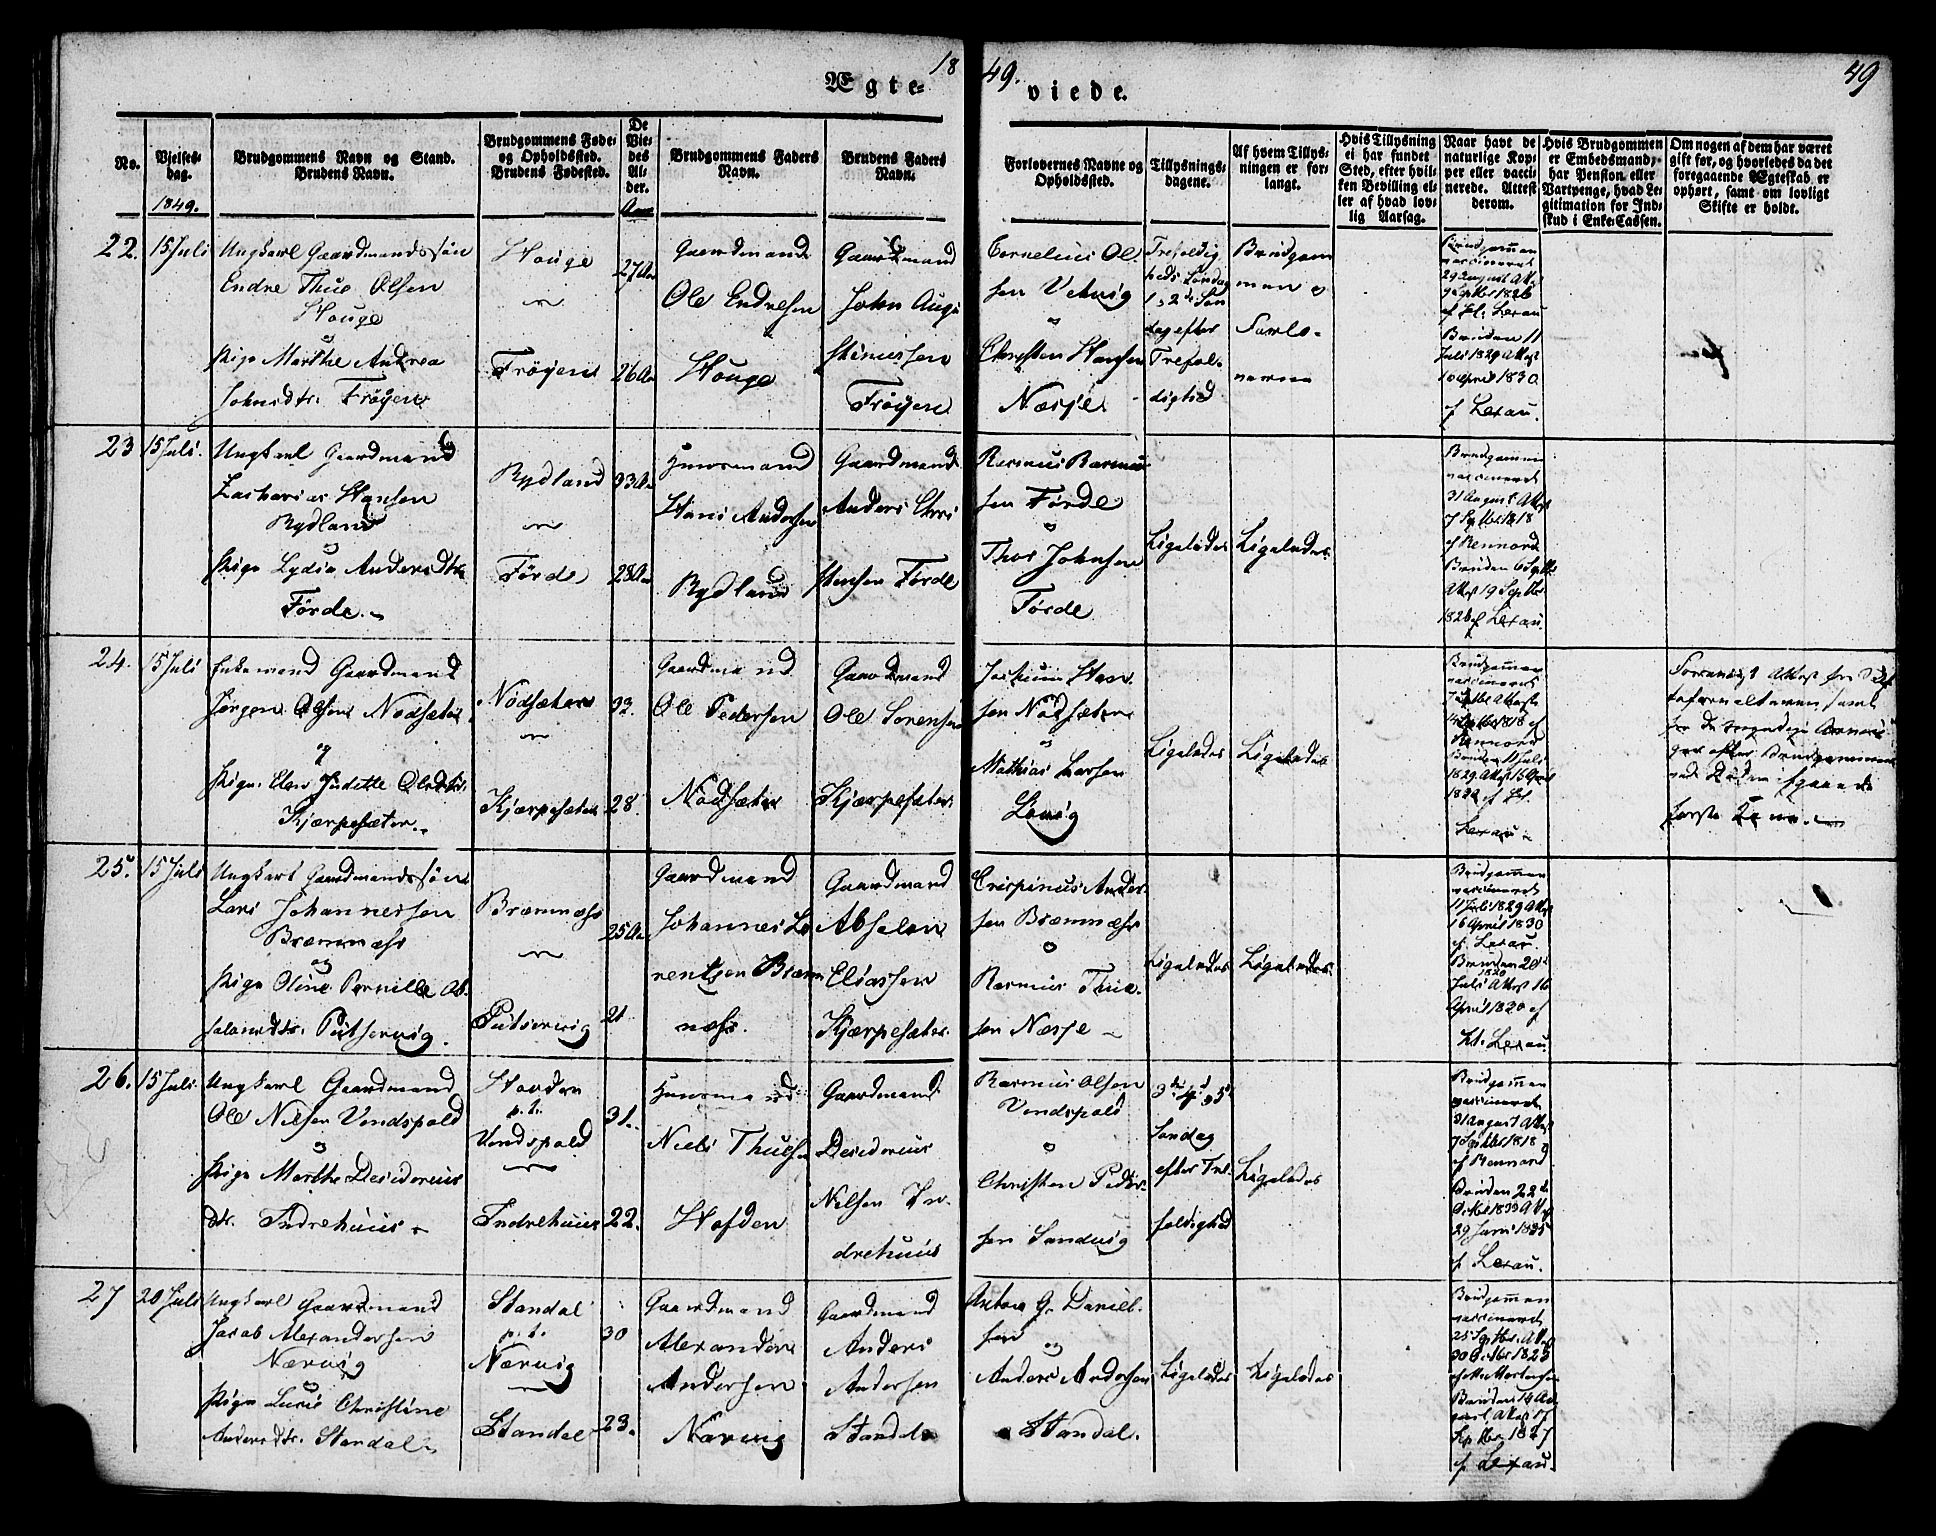 18 49. 49
Ægte- viede.
No.
Vielses-
dag.
1849.
Brudgommens Navn og Stand.
Brudens Navn.
Brudgommens Føde-
og Opholdssted.
Brudens Fødested.
De
Vie-
des
Al-
der.
Aar
Brudgommens Faders
Navn.
Brudens Faders
Navn.
Forlovernes Navne og
Opholdssted.
Tillysnings-
dagene.
Af hvem Tillys-
ningen er for-
langt.
Hvis Tillysning
ei har fundet
Sted, efter hvil-
ken Bevilling el-
ler af hvad lov-
lig Aarsag.
Naar havt de
naturlige Kop-
per eller vacci-
nerede. Attest
derom.
Hvis Brudgommen
er Embedsmand,
har Pension eller
Vartpenge, hvad Le-
gitimation for Ind-
skud i Enke-Cassen.
Om nogen af dem har været
gift før, og hvorledes da det
foregaaende Ægteskab er
ophørt, samt om lovligt
Skifte er holdt.
22.
15 Juli
Ungkarl Gaardmandssøn
Endre Thue Olsen
Houge
og
Pige Marthe Andrea
Johnsdtr. Frøyen
Houge
Frøyen
27 Aar
26 Aar
Gaardmand
Ole Endresen
Houge
Gaardmand
John Augu
stinussen
Frøyen
Cornelius Ol.
sen Vetvig
o
Christen Hansen
Næsje
Trefoldig
heds Søndag
1, 2de Søn
dag efter
Trefol-
dighed
Brudgom
men o
Forlo-
verne
Brudgommen
vaccineret
29 August Attest
Septbr 1826
af Kl. Lexau
Bruden 11
Juli 1829 Attest
10 April 1830
af Lexau.
23
15 Juli.
Ungkarl Gaardmand
Zacharias Hansen
Rydland
og
Pige Lydia Andersdtr
Førde.
Rydland
Førde
33 Aar
28 Aar
Huusmand
Hans Andersen
Rydland
Gaardmand
Anders Chri
stensen Førde
Rasmus Rasmus
sen Førde
o
Thor Johnsen
Førde
Ligeledes
Ligeledes.
Brudgommen
vaccineret
31 August Attest
7 Septbr 1818
af Rennord
Bruden 6 Septbr
Attest 19 Septbr
1826 af Lexau.
24.
15 Juli
Enkemand Gaardmand
Jørgen Olsen Nødsæter
og
Pige Elen Judithe Olsdtr.
Kjærpesæter.
Nødsæter
Kjærpesæter
32.
28.
Gaardmand
Ole Pedersen
Nødsæter
Gaardmand
Ole Sørensen
Kjærpesæter.
Jochum Han
sen Nødsæter
o
Mathias Larsen
Løvig
Ligeledes
Ligeledes
Brudgommen
vaccineret
7 Septbr Attest
14 Septbr 1818 af
Rennord
Bruden 11 Juli
1829 Attest 16 April
af Kl.
Lexau
første Kone.
25.
15 Juli
Ungkarl Gaardmandssøn
Lars Johannessen
Bræmnæss
og
Pige Oline Pernille Ab-
salonsdtr. Pütservig.
Bræmnæss
Pütservig
25 Aar
21
Gaardmand
Johannes La
rentsen Bræm
næss.
Gaardmand
Absalon
Eliassen
Kjærpesæter
Crispinus Ander-
sen Bræmnæss
o
Rasmus Thue-
sen Næsje
Ligeledes
Ligeledes.
Brudgommen
vaccineret
11 Juli 1829 Attest
16 April 1830
af Lexau.
Bruden 20de
Juli Attest 16
April 1830 af
Kl. Lexau
26.
15 Juli
Ungkarl Gaardmand
Ole Nilsen Vendspold
o
Pige Marthe Desiderius
dtr. Indrehuus
Hovden
p.t.
Vendspold
Indrehuus
31.
22.
Huusmand
Niels Thuesen
Hofden
Gaardmand
Desiderius
Nilsen In-
drehuus
Rasmus Olsen
Vendspold
o
Christen Peder-
sen Sandvig
3die 4de o 5te
Søndag
efter Tre-
foldighed
Ligeledes
Brudgommen
vaccineret
31 August Attest
7 Septbr 1818
af Rennord
Bruden 22de
Octbr 1833 Attest
29 Juni 1835
af Lexau.
27
20 Juli
Ungkarl Gaardmand
Jacob Alexandersen
Nærvig
og
Pige Lucie Christine
Andersdtr. Standal
Standal
p.t.
Nærvig
Standal
30
23.
Gaardmand
Alexander
Andersen
Nærvig
Gaardmand
Anders
Andersen
Standal
Anton G. Daniel-
sen
og
Anders Andersen
Standal.
Ligeledes
Ligeledes
Brudgommen
vaccineret
25 Septbr. Attest
30 Octbr 1823
af Mortensen
Bruden 14 Au
gust Attest 17
Septbr 1827
af Lexau.